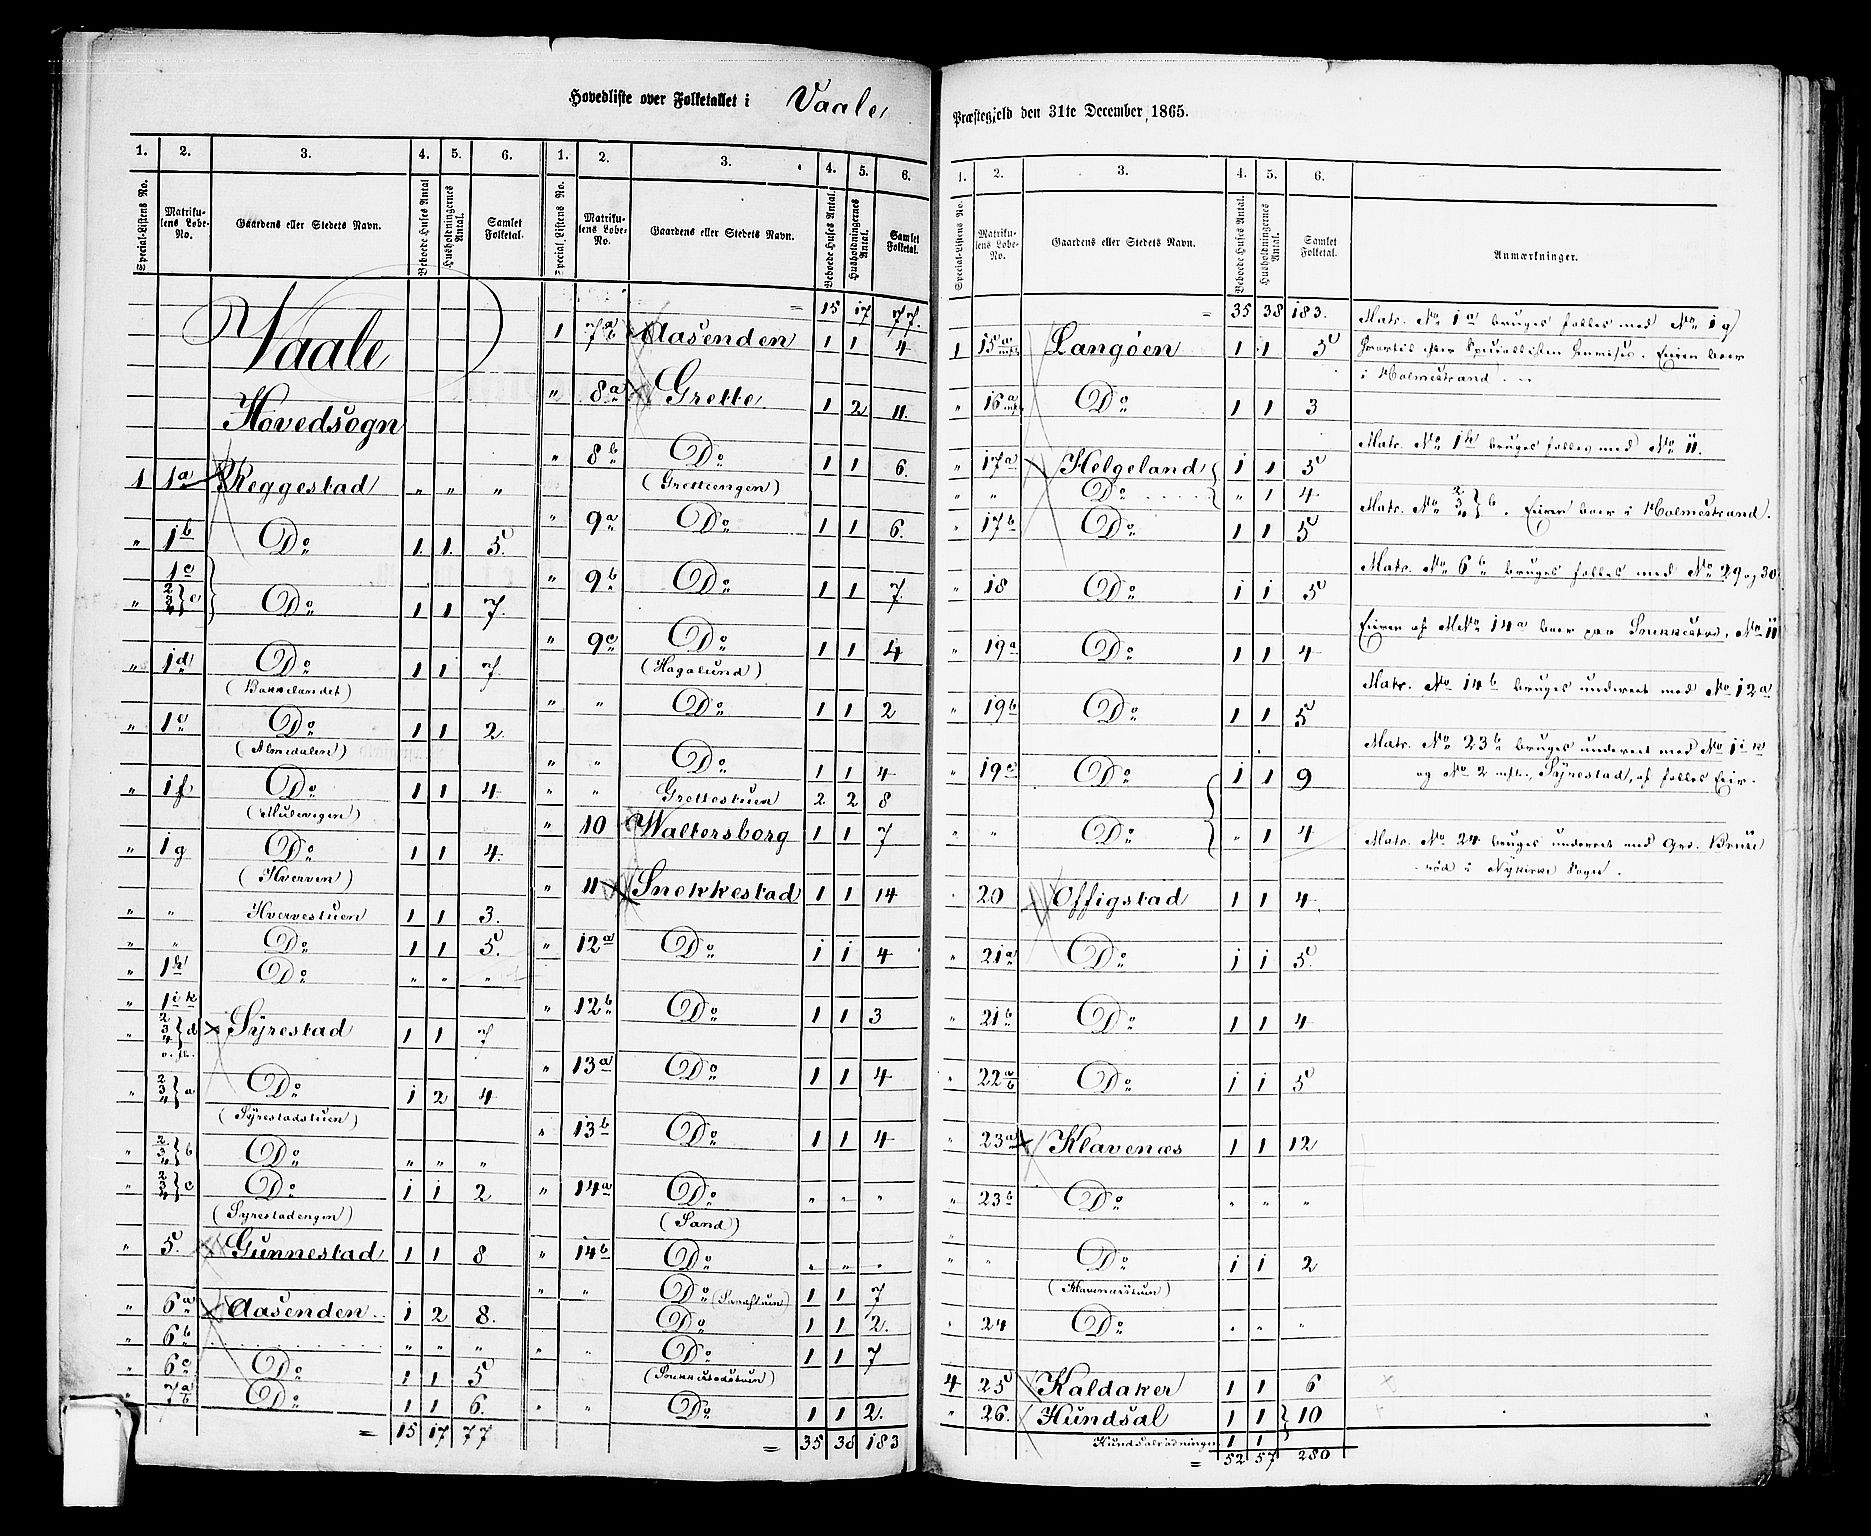 Hovedliste over Folketallet i Vaale
1. 2. 3. 4. 5. 6. 1. 2. 3. 4. 5. 6.
Special-Listens No. Matrikulens Løbe-No. Gaardens eller Stedets Navn. Beboede Huses Antal Husholdningernes Antal. Samlet Folketal. Special-Listens No. Matrikulens Løbe-No. Gaardens eller Stedets Navn. Beboede Huses Antal. Husholdningernes Antal. Samlet Folketal.
Vaale
Hovedsogn
1 1a Reggestad " " "
" 1b Do 1 1 5.
1c
" 2 3 4 } c Do 1 1 7.
" 1d Do 1 1 7.
(Bakkelandet)
" 1e Do 1 1 2.
(Almedalen)
" 1f Do 1 1 4
(Mulevegen)
" 1g Do 1 1 4.
(Hverven)
" " Hvervestuen 1 1 3.
" " Do 1 1 5.
" 1h Do " " "
" 1i k
" 2 3 4 } d Syrestad 1 1 7
" 2 3 4 } a Do 1 2 4
(Syrestadstuen)
" 2 3 4 } b Do " " "
" 2 3 4 } c Do 1 1 2
(Syrestadengen)
" 5. Gunnestad 1 1 8
" 6a Aasenden 1 2 8.
" 6b " " "
" 6c Do 1 1 5
" 7a b Do 1 1 6.
= 15 17 77
= 15 17 77.
1 7a b Aasenden 1 1 4
" 8a Grette 1 2 11.
" 8b Do 1 1 6.
(Gretteengen)
" 9a Do 1 1 6.
" 9b Do 1 1 7.
" 9c Do 1 1 4
(Hagalund)
" " Do 1 1 2
" " Do 1 1 4
" " Grettestuen 2 2 8
" 10 Waltersborg 1 1 7
" 11 Snekkestad 1 1 14
" 12a Do 1 1 4
" 12b Do 1 1 3
" 13a Do 1 1 4
" 13b Do 1 1 4
" 14a Do " " "
(Sand)
" 14b Do " " "
" " Do 1 1 7
Do 1 1 2.
" " Do 1 1 7
(Snekkestadstuen)
" " Do 1 1 2.
= 35 38 183
Præstegjeld den 31te December 1865.
1. 2. 3. 4. 5. 6.
Special-Listens No. Matrikulens Løbe-No. Gaardens eller Stedets Navn. Beboede Huses Antal. Husholdningernes Antal. Samlet Folketal. Anmærkninger.
= 35 38 183.
1 15a Langøen 1 1 5
" 16a Do 1 1 3
" 17a Helgeland 1 1 5
" " Do " 1 4
" 17b Do 1 1 5
" 18 Do 1 1 5
" 19a Do 1 1 4
" 19b Do 1 1 5
" 19c Do 1 1 9
" " Do " 1 4
" 20 Offigstad 1 1 4
" 21a Do 1 1 5.
" 21b Do 1 1 4
" 22a b Do 1 1 5
" 23a Klavenæs 1 1 12
" 23b Do " " "
" " Do 1 1 2
(Klavenæsstuen)
" 24 Do " " "
4 25 Kaldaker 1 1 6
" 26. Hundsal 1 1 } 10
Hundsalrødningen 1 1
= 52 57 280
Matr. No 1a bruges fælles med No 1g
Eieren boer
i Holmestrand.
Matr. No 1h bruges fælles med No 11.
Matr. No 2 3 4 } b. Eieren boer i Holmestrand.
Matr. No 6b bruges fælles med No 29 og 30
Eieren af MNo 14a boer paa Snekkestad, No 11
Matr. No 14b bruges underet med No 12a
Matr. No 23b bruges underet med No 1i k
og No 2 mfl., Syrestad, af fælles Eier.
Matr. No 24 bruges underet med Grd. Bruserød i Nykirke Sogn.